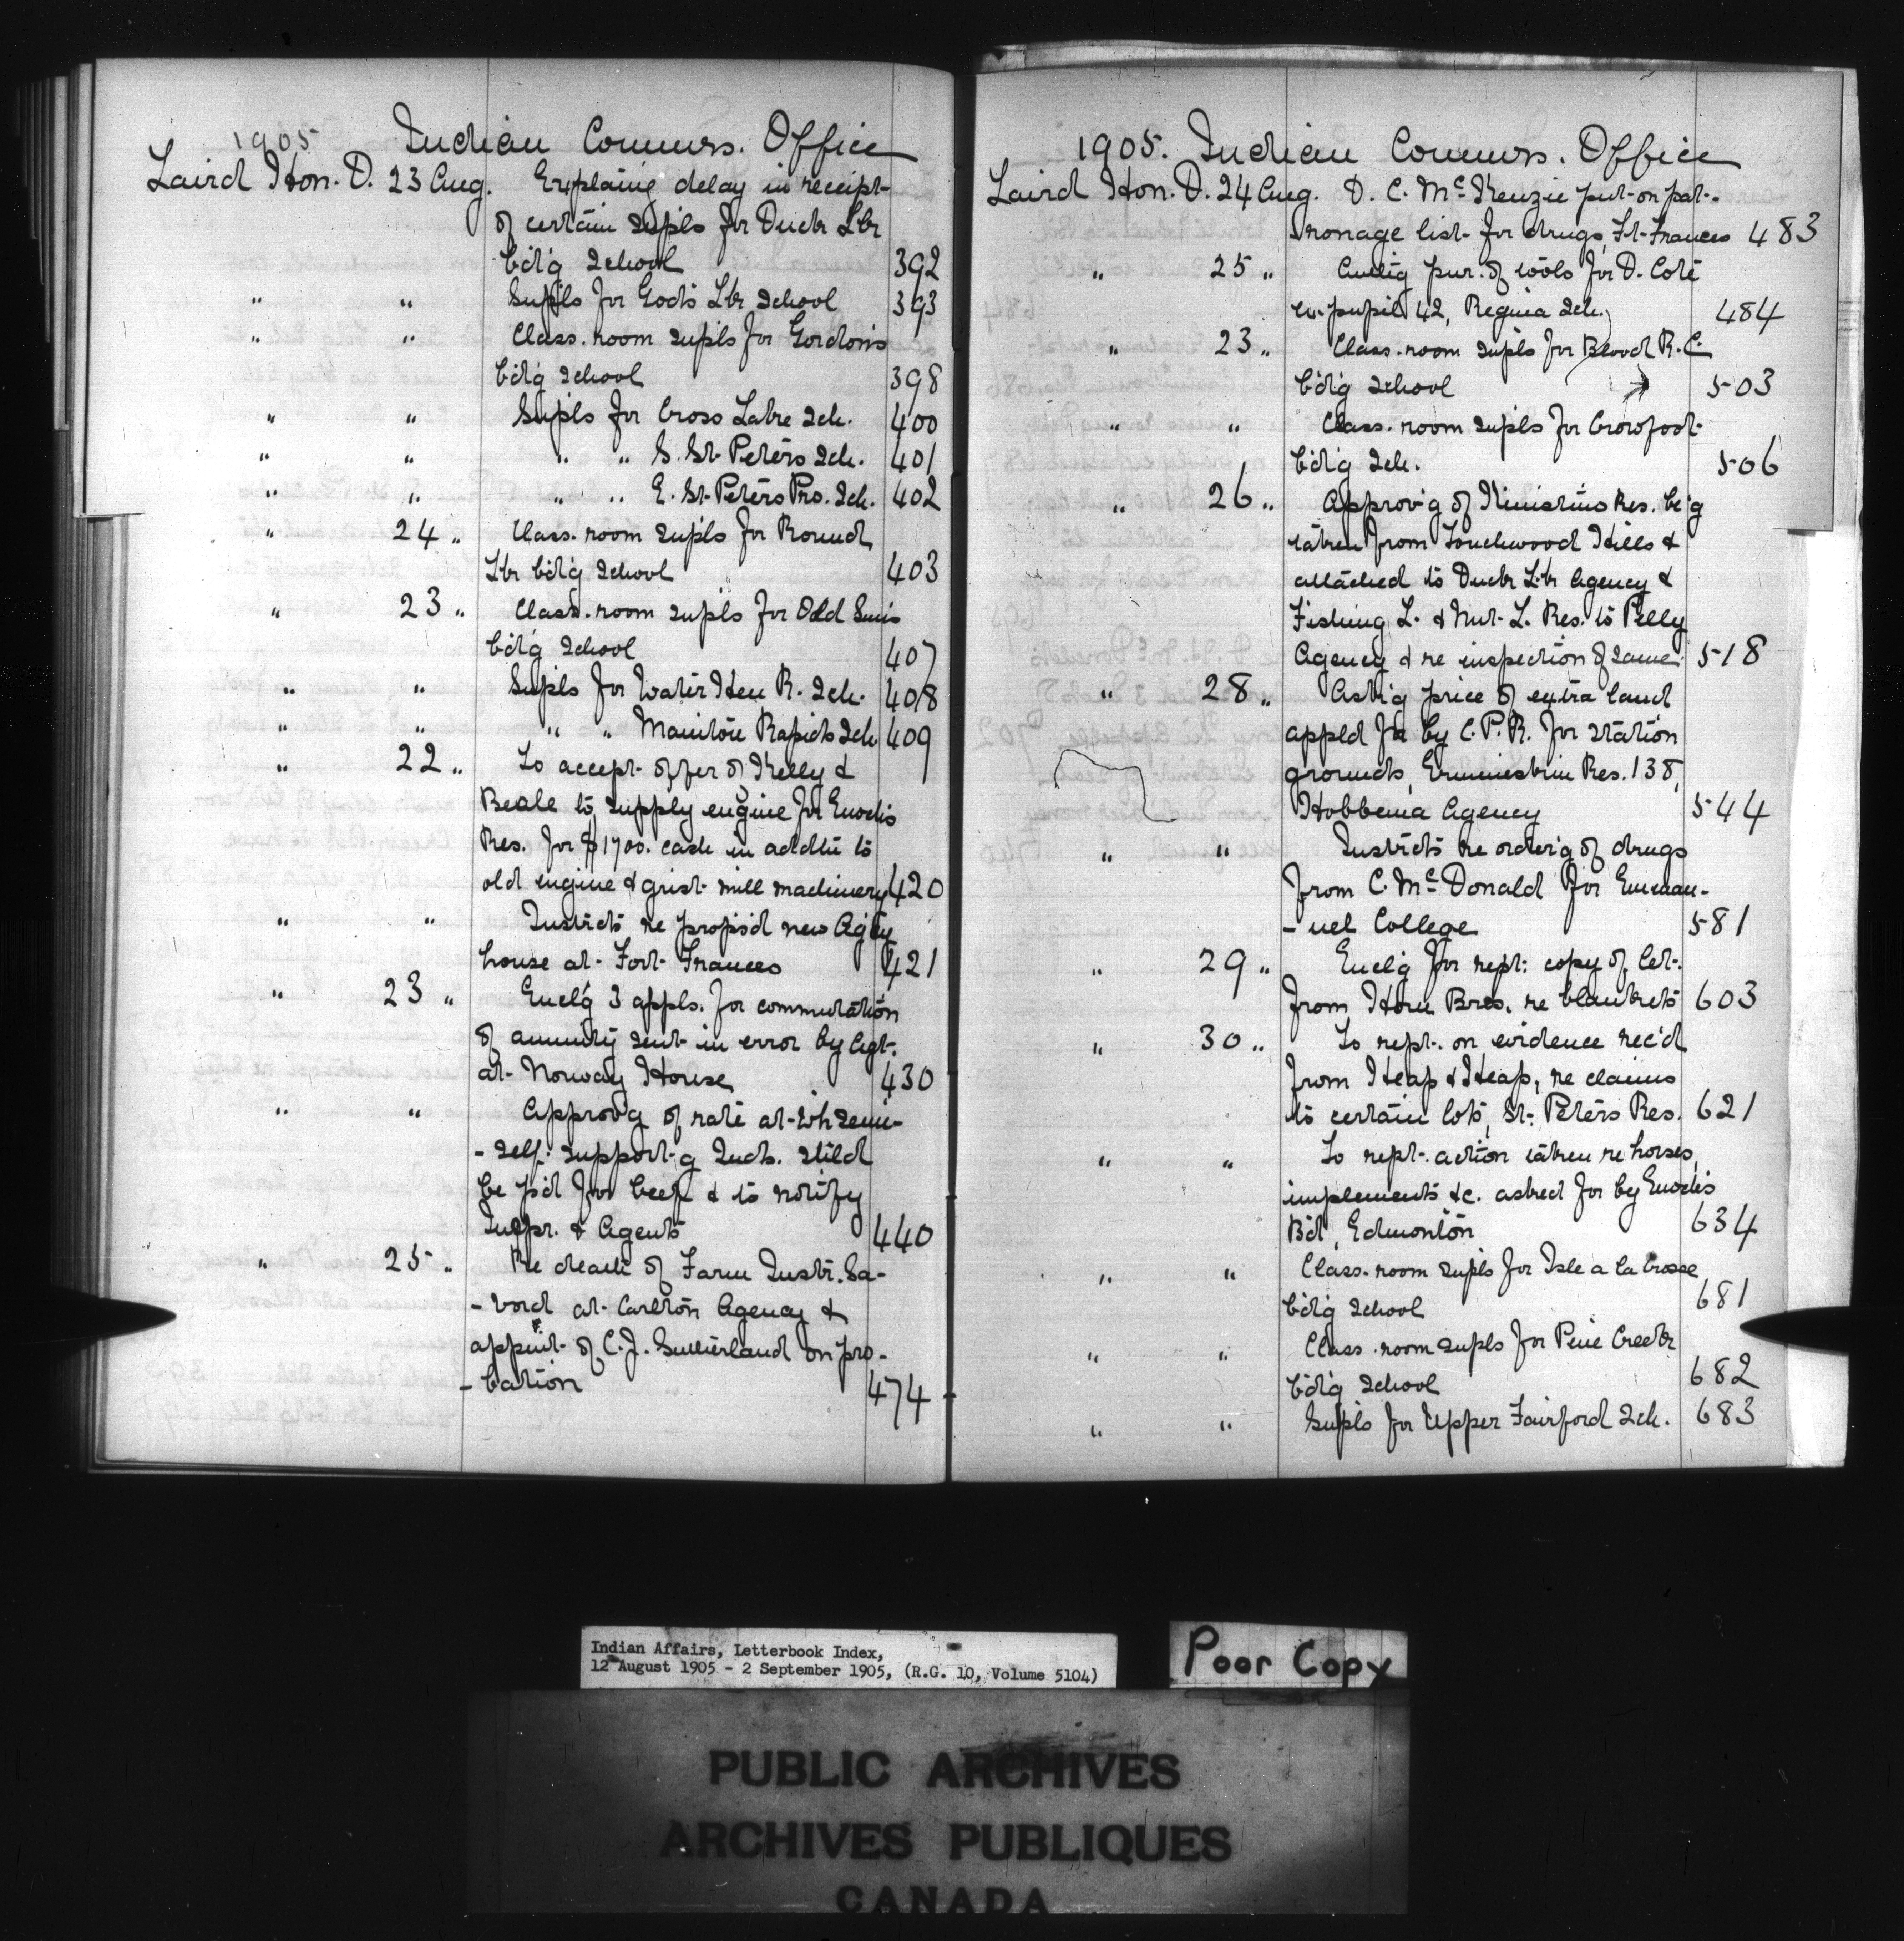 1905 Indian Commrs. Office
Laird Hon. D. 23 Aug. Explain'g delay in receipt
of certain supls for Duck Lk
b'd'g School 392
" " Supls for God's Lk School 393
" " Class-room supls for Gordon's
b'd'g School 398
" " Supls for Cross Lake Sch. 400
" " " " S. St. Peter's Sch. 401
" " " " E. St. Peter's Pro. Sch. 402
" 24 " Class-room supls for Round
Lk b'd'g School 403
" 23 " Class-room supls for Old Sun's
b'd'g School 407
" " Supls for Water Hen R. Sch. 408
" " " " Manitou Rapids Sch 409
" 22 " To accept offer of Kelly &
Beale to supply engine for Enoch's
Res. for $1700. cash in addtn to
old engine & grist mill machinery 420
" " Instrcts re propos'd new Ag'cy
house at Fort Frances 421
" 23 " Encl'g 3 appls. for commutation
of annuity sent in error by Agt.
at Norway House 430
" " Approv'g of rate at wh semi-
-self-support'g Inds. shld
be p'd for beef & to notify
Inspr. & Agents 440
" 25 " Re death of Farm Instr. Sa-
-vard at Carlton Agency &
appmt of C. J. Sutherland on pro-
-bation 474
1905. Indian Commrs. Office
Laird Hon. D. 24 Aug. D. C. McKenzie put on pat-
ronage list for drugs, Ft. Frances 483
" 25 " Auth'g pur. of tools for D. Coté
ex-pupil 42, Regina Sch. 484
" 23 " Class-room supls for Blood R.C.
b'd'g School 503
" " Class-room supls for Crowfoot
b'd'g Sch. 506
" 26 " Approv'g of Kinistino Res. be'g
taken from Touchwood Hills &
attached to Duck Lk Agency &
Fishing L. & Nut L. Res. to Pelly
Agency & re inspection of same 518
" 28 " Ask'g price of extra land
appld for by C.P.R. for station
grounds, Ermineskin Res. 138,
Hobbema Agency 544
" " Instrcts re order'g of drugs
from C. McDonald for Emman-
-uel College 581
" 29 " Encl'g for rept: copy of let.
from Horn Bros. re blankets 603
" 30 " To rept. on evidence rec'd
from Heap & Heap, re claims
to certain lots, St. Peter's Res. 621
" " To rept. action taken re horses,
implements &c. asked for by Enoch's
Bd, Edmonton 634
" " Class-room supls for Isle a la Crosse
b'd'g School 681
" " Class-room supls for Pine Creek
b'd'g School 682
" " Supls for Upper Fairford Sch. 683
Indian Affairs, Letterbook Index,
12 August 1905 - 2 September 1905, (R.G. 10, Volume 5104)
Poor Copy
PUBLIC ARCHIVES
ARCHIVES PUBLIQUES
CANADA